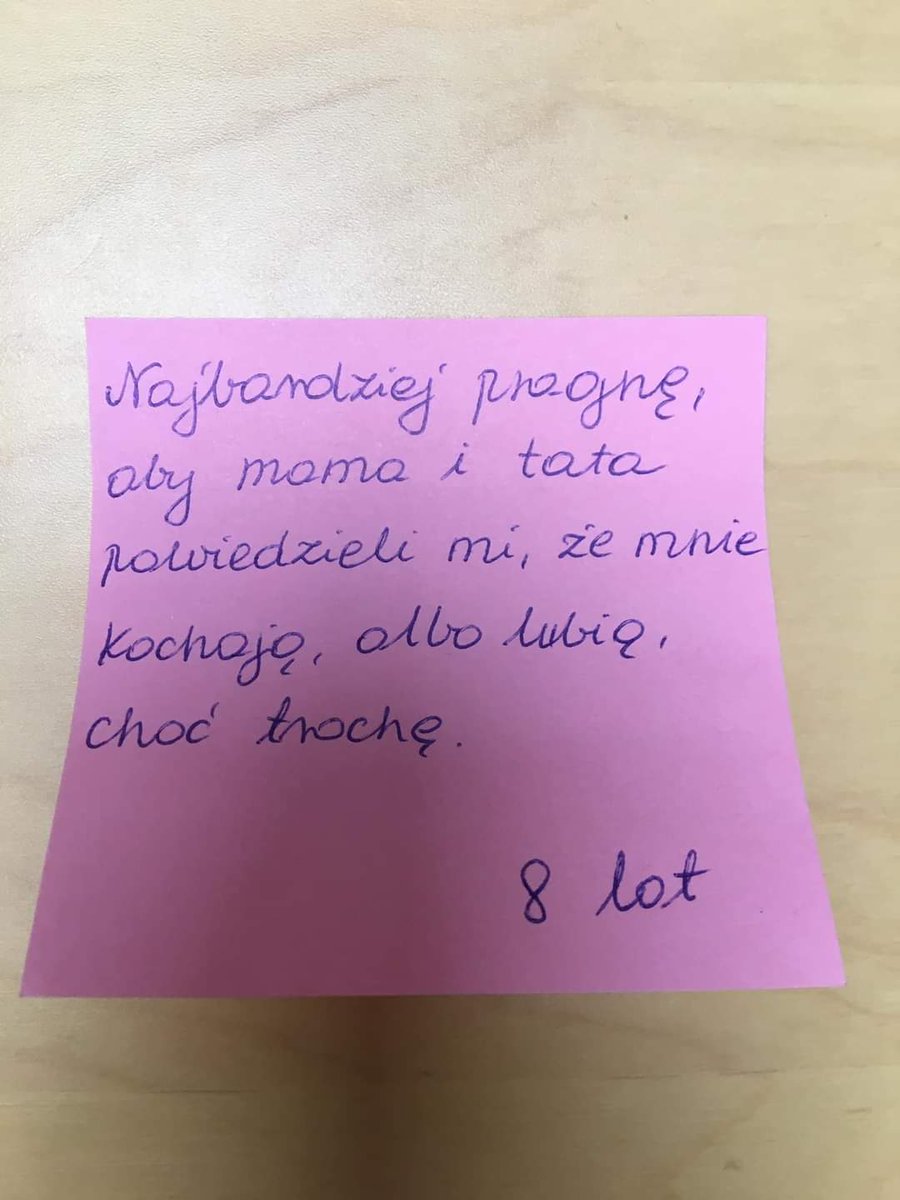 Najbardziej pragnę,
aby mama i tata
powiedzieli mi, że mnie
kochają, albo lubią,
choć trochę.
8 lat